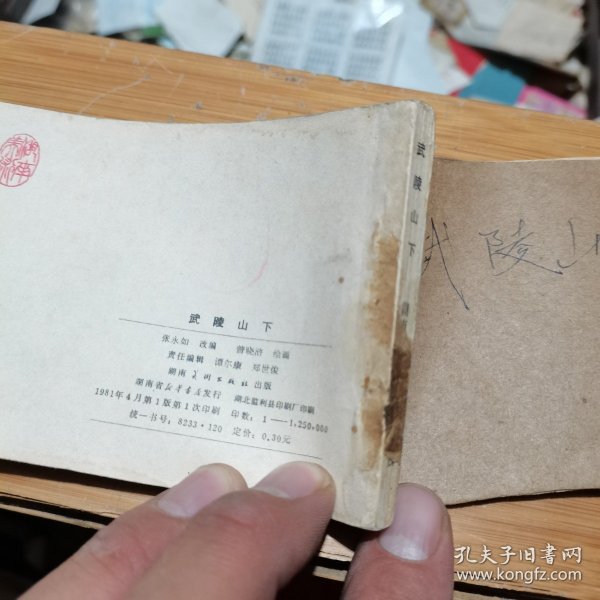 武陵山下
张永如 改编 曾晓浒 绘画
责任编辑 谭尔康 郑世俊
湖南美术出版社出版
湖南省新华书店发行 湖北监利县印刷厂印刷
1981年4月第1版第1次印刷 印数:1—1,250,000
统一书号:8233·120 定价:0.30元
武陵山下
武陵山
孔夫子旧书网
www.kongfz.com